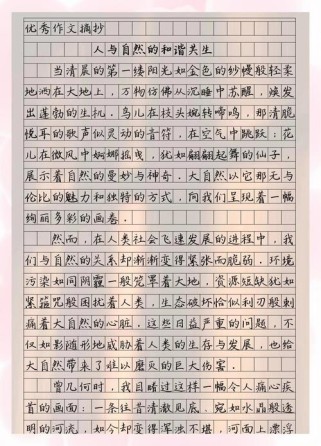 优秀作文摘抄
人与自然的和谐共生
当清晨的第一缕阳光如金色的纱幔般轻柔
地洒在大地上，万物仿佛从沉睡中苏醒，焕发
出蓬勃的生机。鸟儿在枝头婉转啼鸣，那清脆
悦耳的歌声似灵动的音符，在空气中跳跃；花
儿在微风中婀娜摇曳，犹如翩翩起舞的仙子，
展示着自然的曼妙与神奇。大自然以它那无与
伦比的魅力和独特的方式，向我们呈现着一幅
绚丽多彩的画卷。
然而，在人类社会飞速发展的进程中，我
们与自然的关系却渐渐变得紧张而脆弱。环境
污染如同阴霾一般笼罩着大地，资源短缺犹如
紧箍咒般困扰着人类，生态破坏恰似利刃般刺
痛着大自然的心脏。这些日益严重的问题，不
仅如影随形地威胁着人类的生存与发展，也给
大自然带来了难以磨灭的巨大伤害。
曾几何时，我目睹过这样一幅令人痛心疾
首的画面：一条往昔清澈见底、宛如水晶般透
明的河流，如今却变得浑浊不堪，河面上漂浮